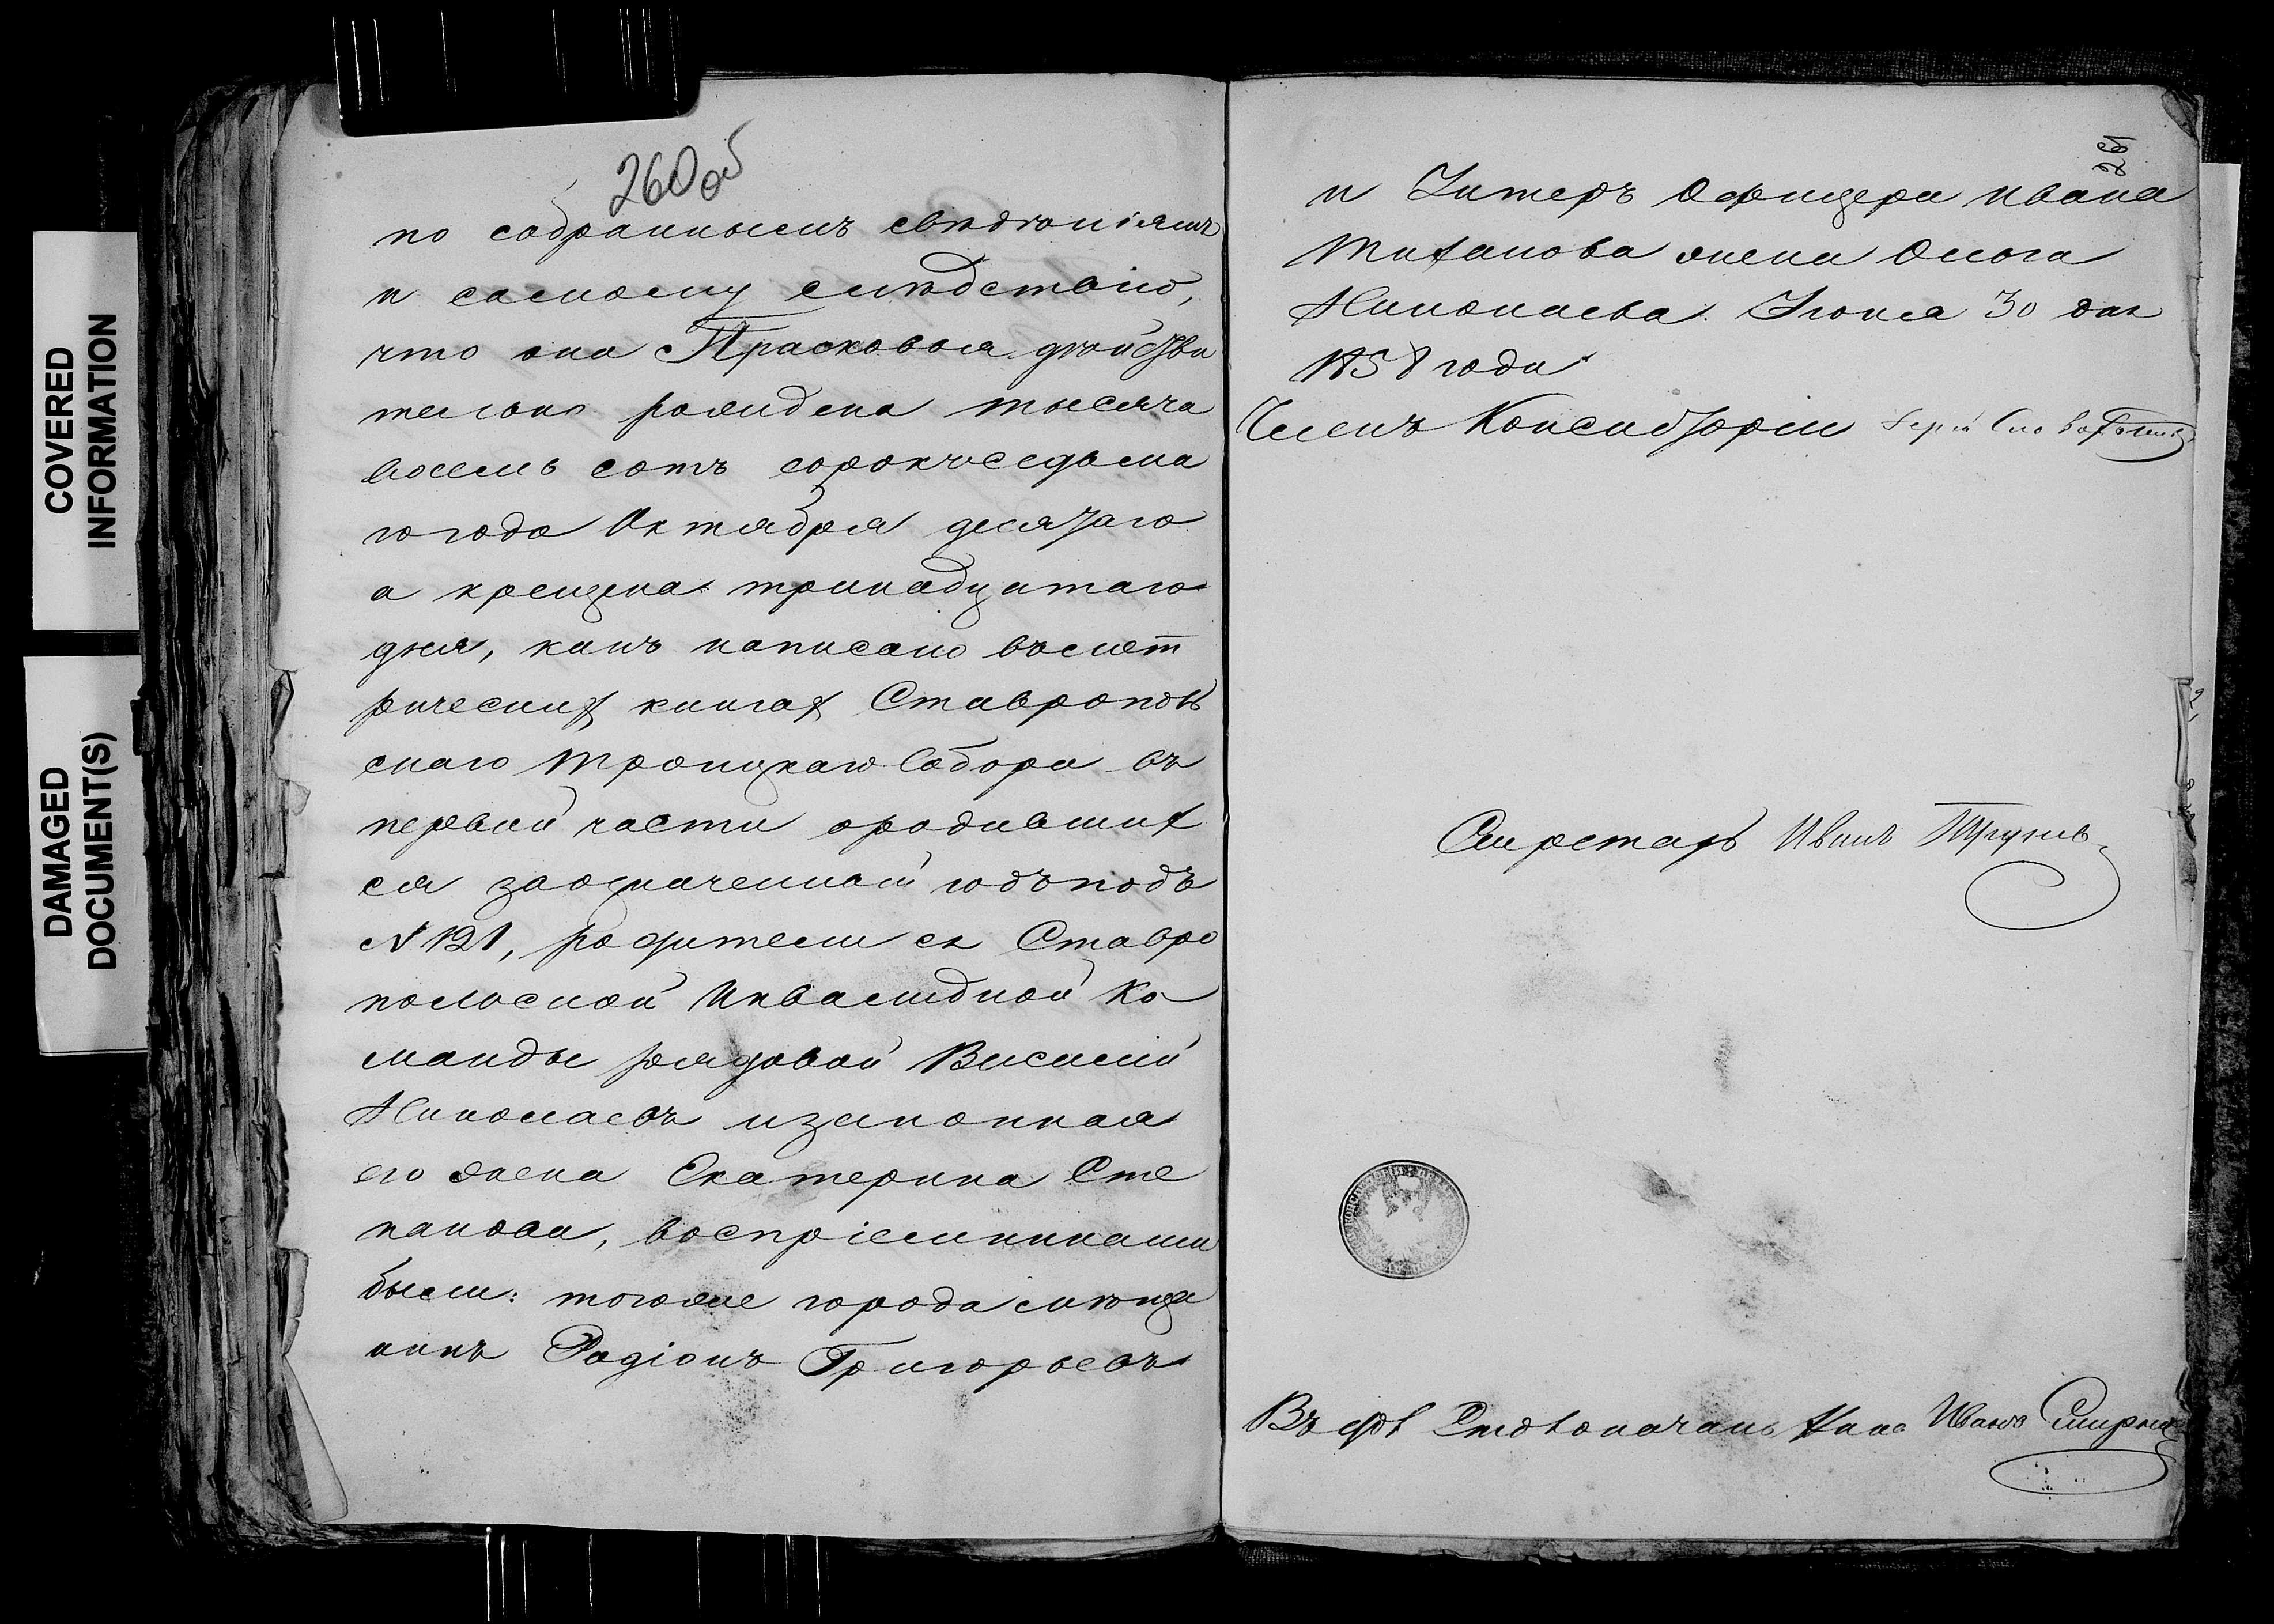 COVERED
INFORMATION
DAMAGED
DOCUMENT(S)
260 об
по собраннымъ свѣдѣніямъ
и самому слѣдствію,
что она Прасковья дѣйстви
тельно рождена тысяча
восемь сотъ сорокъ седьма
го года Октября десятаго
а крещена тринадцатаго
дня, какъ написано въ мет
рическихъ книгахъ Ставрополь
скаго Троицкаго Собора въ
первой части о родивших
ся за означенный годъ подъ
N 121, родители ея Ставро
польской Инвалидной Ко
манды рядовой Василій
Николаевъ и законная
его жена Екатерина Сте
панова, воспріемниками
были: того же города мѣща
нинъ Радіонъ Григорьевъ
261
и Унтеръ Офицера Ивана
Тиханова жена Ольга
Николаева. Іюня 30 дня
1858 года
Членъ Консисторіи
Секретарь Иванъ
Въ д. Столоначаль Иванъ Смирнов